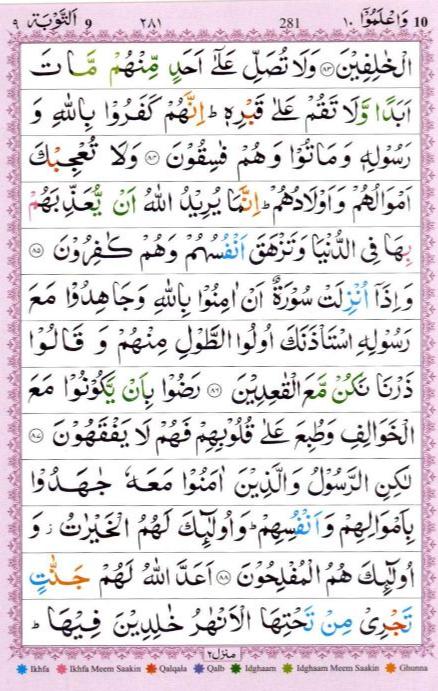 10 وَاعْلَمُوْٓا ١٠ 281 ٢٨١ 9 اَلتَّوْبَة ٩
الْخٰلِفِيْنَ ﴿٨٣﴾ وَلَا تُصَلِّ عَلٰٓى اَحَدٍ مِّنْهُمْ مَّاتَ
اَبَدًا وَّلَا تَقُمْ عَلٰى قَبْرِهٖ ؕ اِنَّهُمْ كَفَرُوْا بِاللّٰهِ وَ
رَسُوْلِهٖ وَمَاتُوْا وَهُمْ فٰسِقُوْنَ ﴿٨٤﴾ وَلَا تُعْجِبْكَ
اَمْوَالُهُمْ وَاَوْلَادُهُمْ ؕ اِنَّمَا يُرِيْدُ اللّٰهُ اَنْ يُّعَذِّبَهُمْ
بِهَا فِى الدُّنْيَا وَتَزْهَقَ اَنْفُسُهُمْ وَهُمْ كٰفِرُوْنَ ﴿٨٥﴾
وَاِذَآ اُنْزِلَتْ سُوْرَةٌ اَنْ اٰمِنُوْا بِاللّٰهِ وَجَاهِدُوْا مَعَ
رَسُوْلِهِ اسْتَاْذَنَكَ اُولُوا الطَّوْلِ مِنْهُمْ وَقَالُوْا
ذَرْنَا نَكُنْ مَّعَ الْقٰعِدِيْنَ ﴿٨٦﴾ رَضُوْا بِاَنْ يَّكُوْنُوْا مَعَ
الْخَوَالِفِ وَطُبِعَ عَلٰى قُلُوْبِهِمْ فَهُمْ لَا يَفْقَهُوْنَ ﴿٨٧﴾
لٰكِنِ الرَّسُوْلُ وَالَّذِيْنَ اٰمَنُوْا مَعَهٗ جٰهَدُوْا
بِاَمْوَالِهِمْ وَاَنْفُسِهِمْ ؕ وَاُولٰٓئِكَ لَهُمُ الْخَيْرٰتُ ز وَ
اُولٰٓئِكَ هُمُ الْمُفْلِحُوْنَ ﴿٨٨﴾ اَعَدَّ اللّٰهُ لَهُمْ جَنّٰتٍ
تَجْرِىْ مِنْ تَحْتِهَا الْاَنْهٰرُ خٰلِدِيْنَ فِيْهَا ؕ
منزل ٢
Ikhfa Ikhfa Meem Saakin Qalqala Qalb Idghaam Idghaam Meem Saakin Ghunna